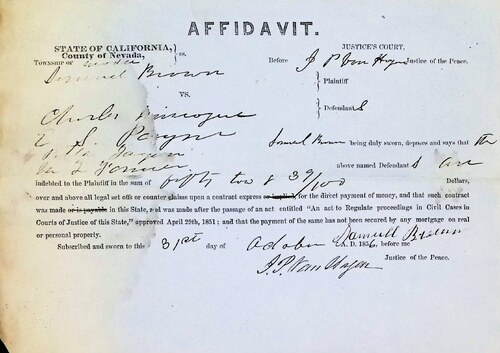 AFFIDAVIT.
STATE OF CALIFORNIA, } ss.
County of Nevada,
JUSTICE'S COURT,
TOWNSHIP OF
Before J P Van Hagen Justice of the Peace.
Samuel Brown
Plaintiff
VS.
Charles
Defendant S
S. Payne
Samuel Brown being duly sworn, deposes and says that the
above named Defendant s are
indebted to the Plaintiff in the sum of fifty two & 39/100 Dollars,
over and above all legal set offs or counter claims upon a contract express or implied, for the direct payment of money, and that such contract
was made or is payable in this State, and was made after the passage of an act entitled "An act to Regulate proceedings in Civil Cases in
Courts of Justice of this State," approved April 29th, 1851; and that the payment of the same has not been secured by any mortgage on real
or personal property.
Samuell Brown
Subscribed and sworn to this 31st day of October A. D. 1856, before me
J. P. Van Hagen Justice of the Peace.